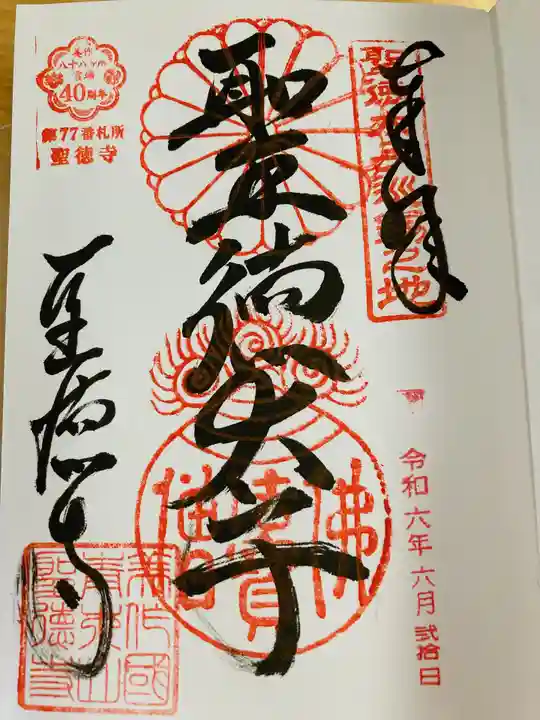 奉拝
聖徳太子巡錫之地
令和六年六月弐拾日
聖徳太子
佛法僧寳
美作
八十八ヶ所
霊場
40周年
第77番札所
聖徳寺
聖徳寺
美作國
聖徳寺